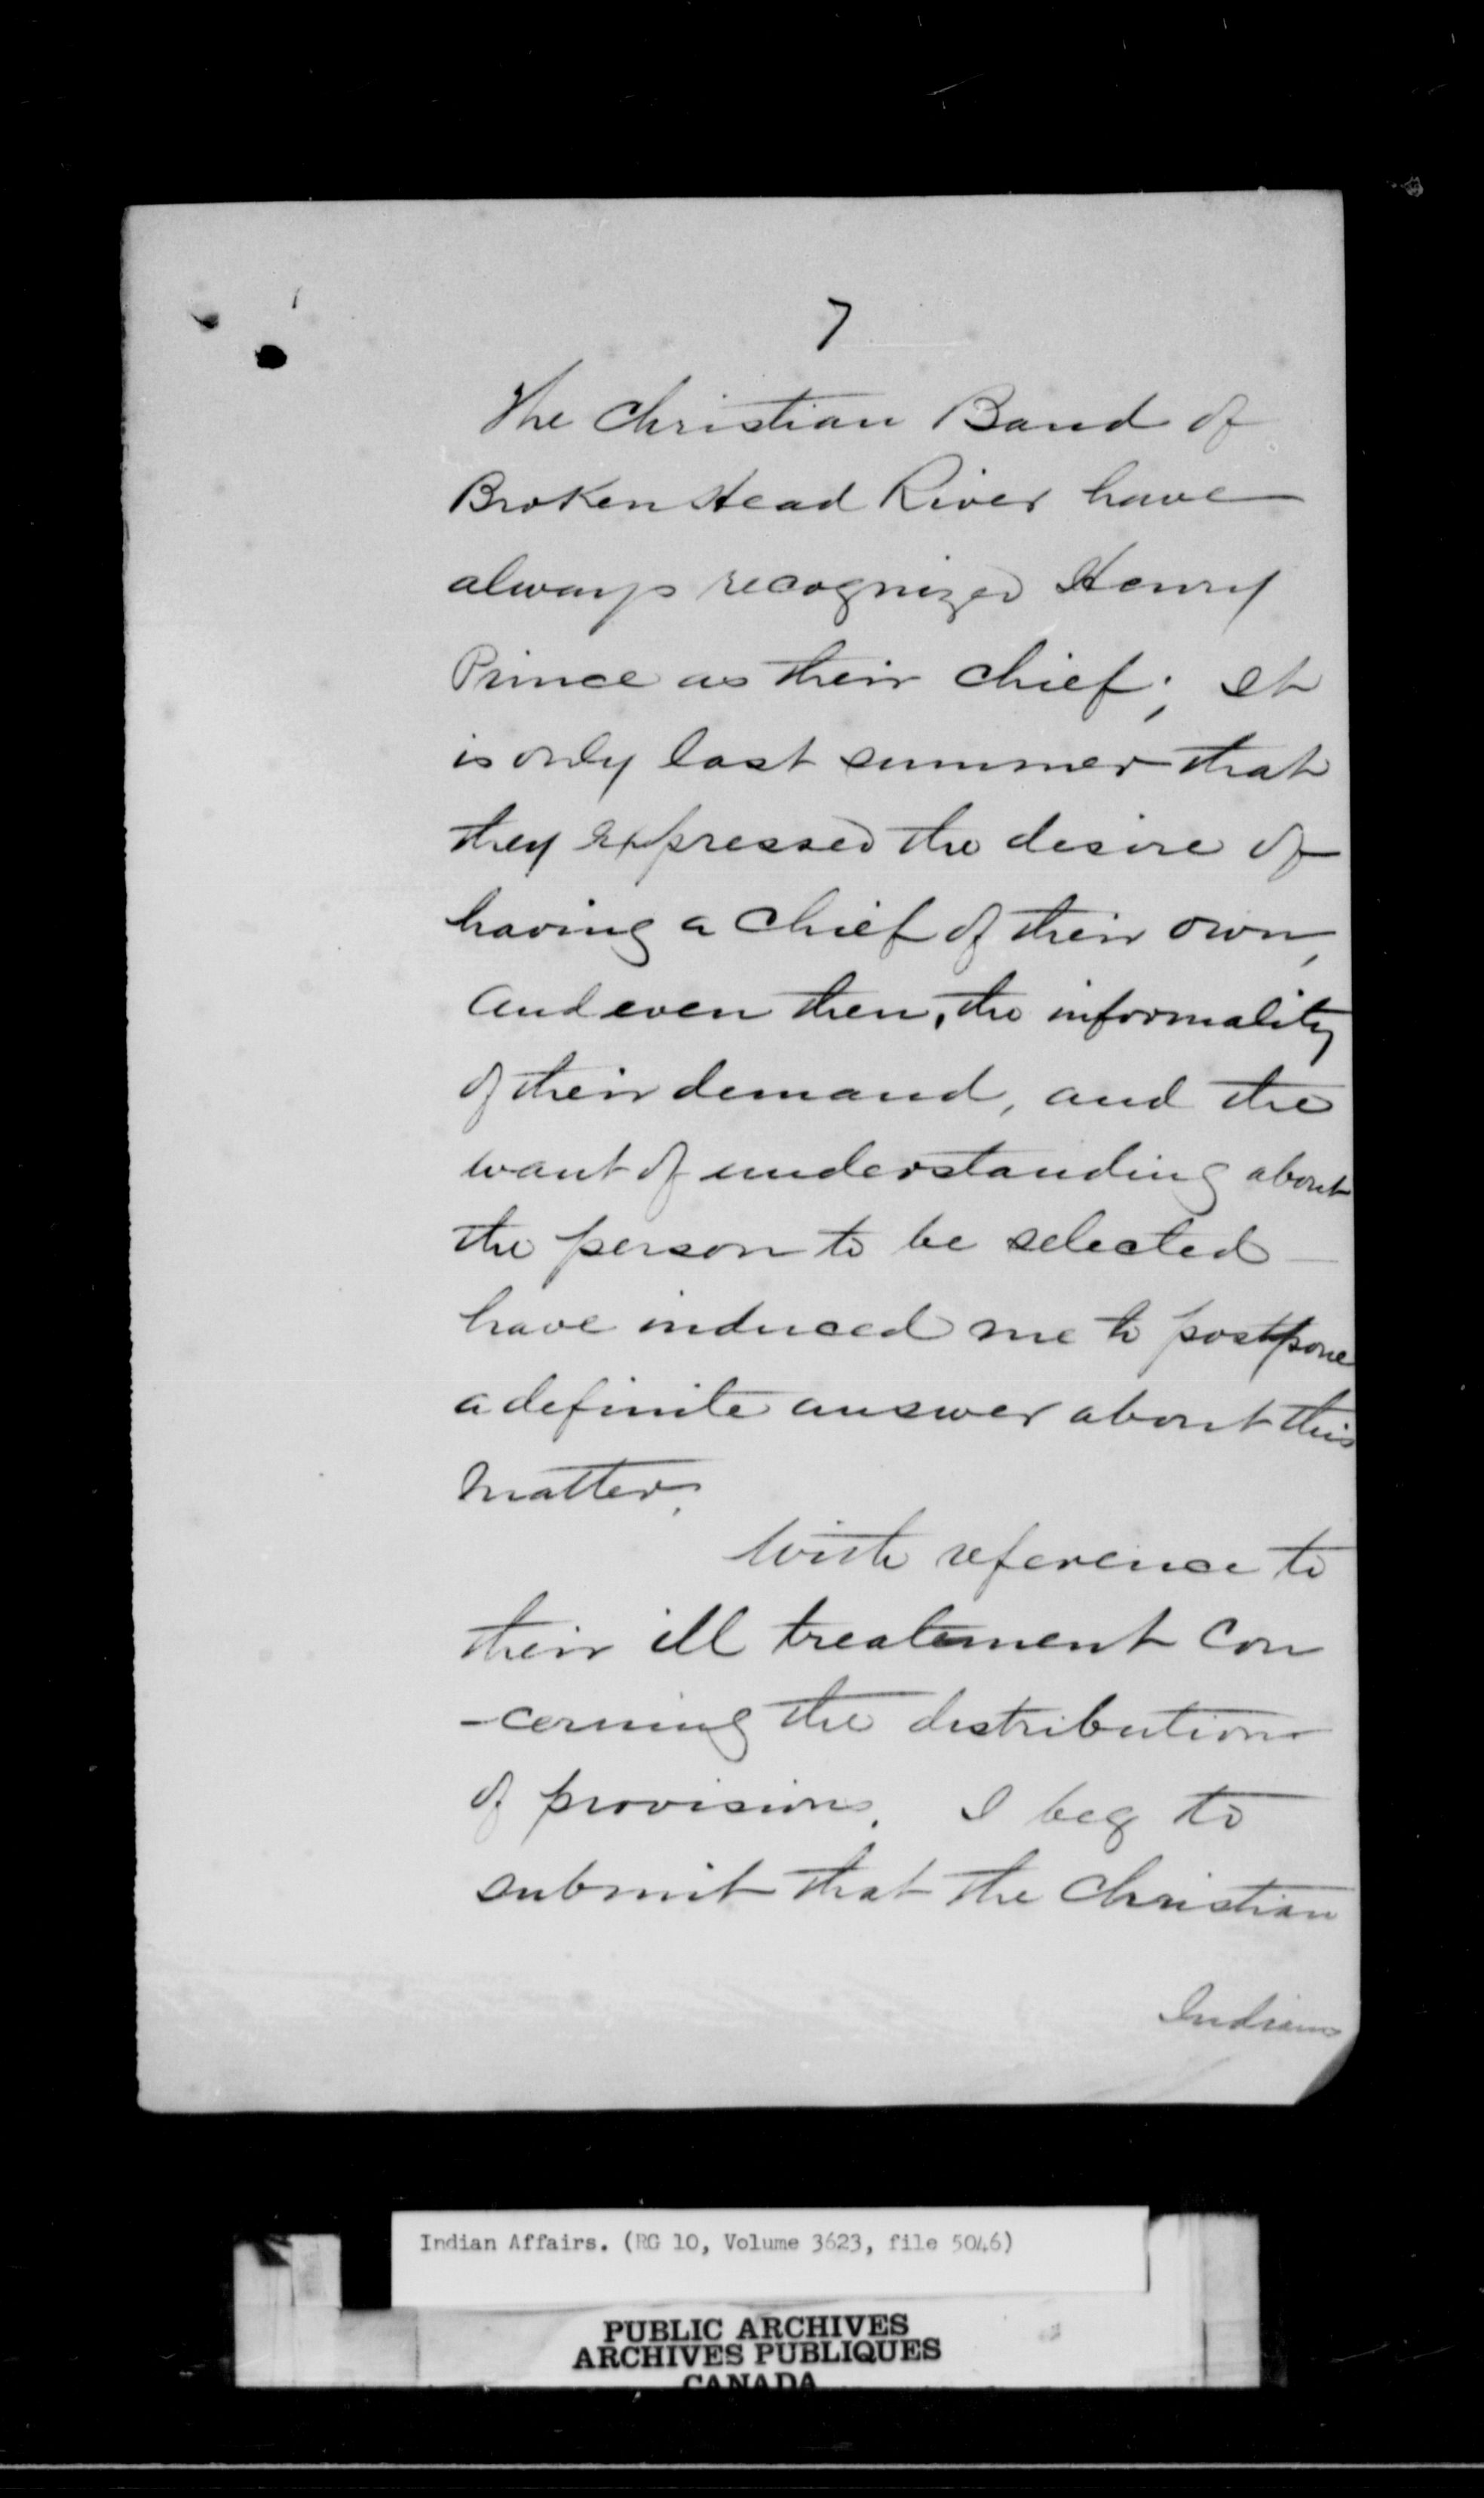 7
The Christian Band of
Broken Head River have
always recognized Henry
Prince as their chief; It
is only last summer that
they expressed the desire of
having a Chief of their own,
and even then, the informality
of their demand, and the
want of understanding about
the person to be selected
have induced me to postpone
a definite answer about this
matter.
With reference to
their ill treatement con
-cerning the distribution
of provisions. I beg to
submit that the Christian
Indians
Indian Affairs. (RG 10, Volume 3623, file 5046)
PUBLIC ARCHIVES
ARCHIVES PUBLIQUES
CANADA